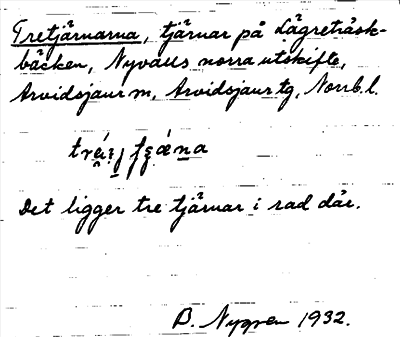 Tretjärnarna, tjärnar på Lägreträsk-
bäcken, Nyvalls norra utskifte,
Arvidsjaur m, Arvidsjaur tg, Norrb. l.
Det ligger tre tjärnar i rad där.
B. Nygren 1932.